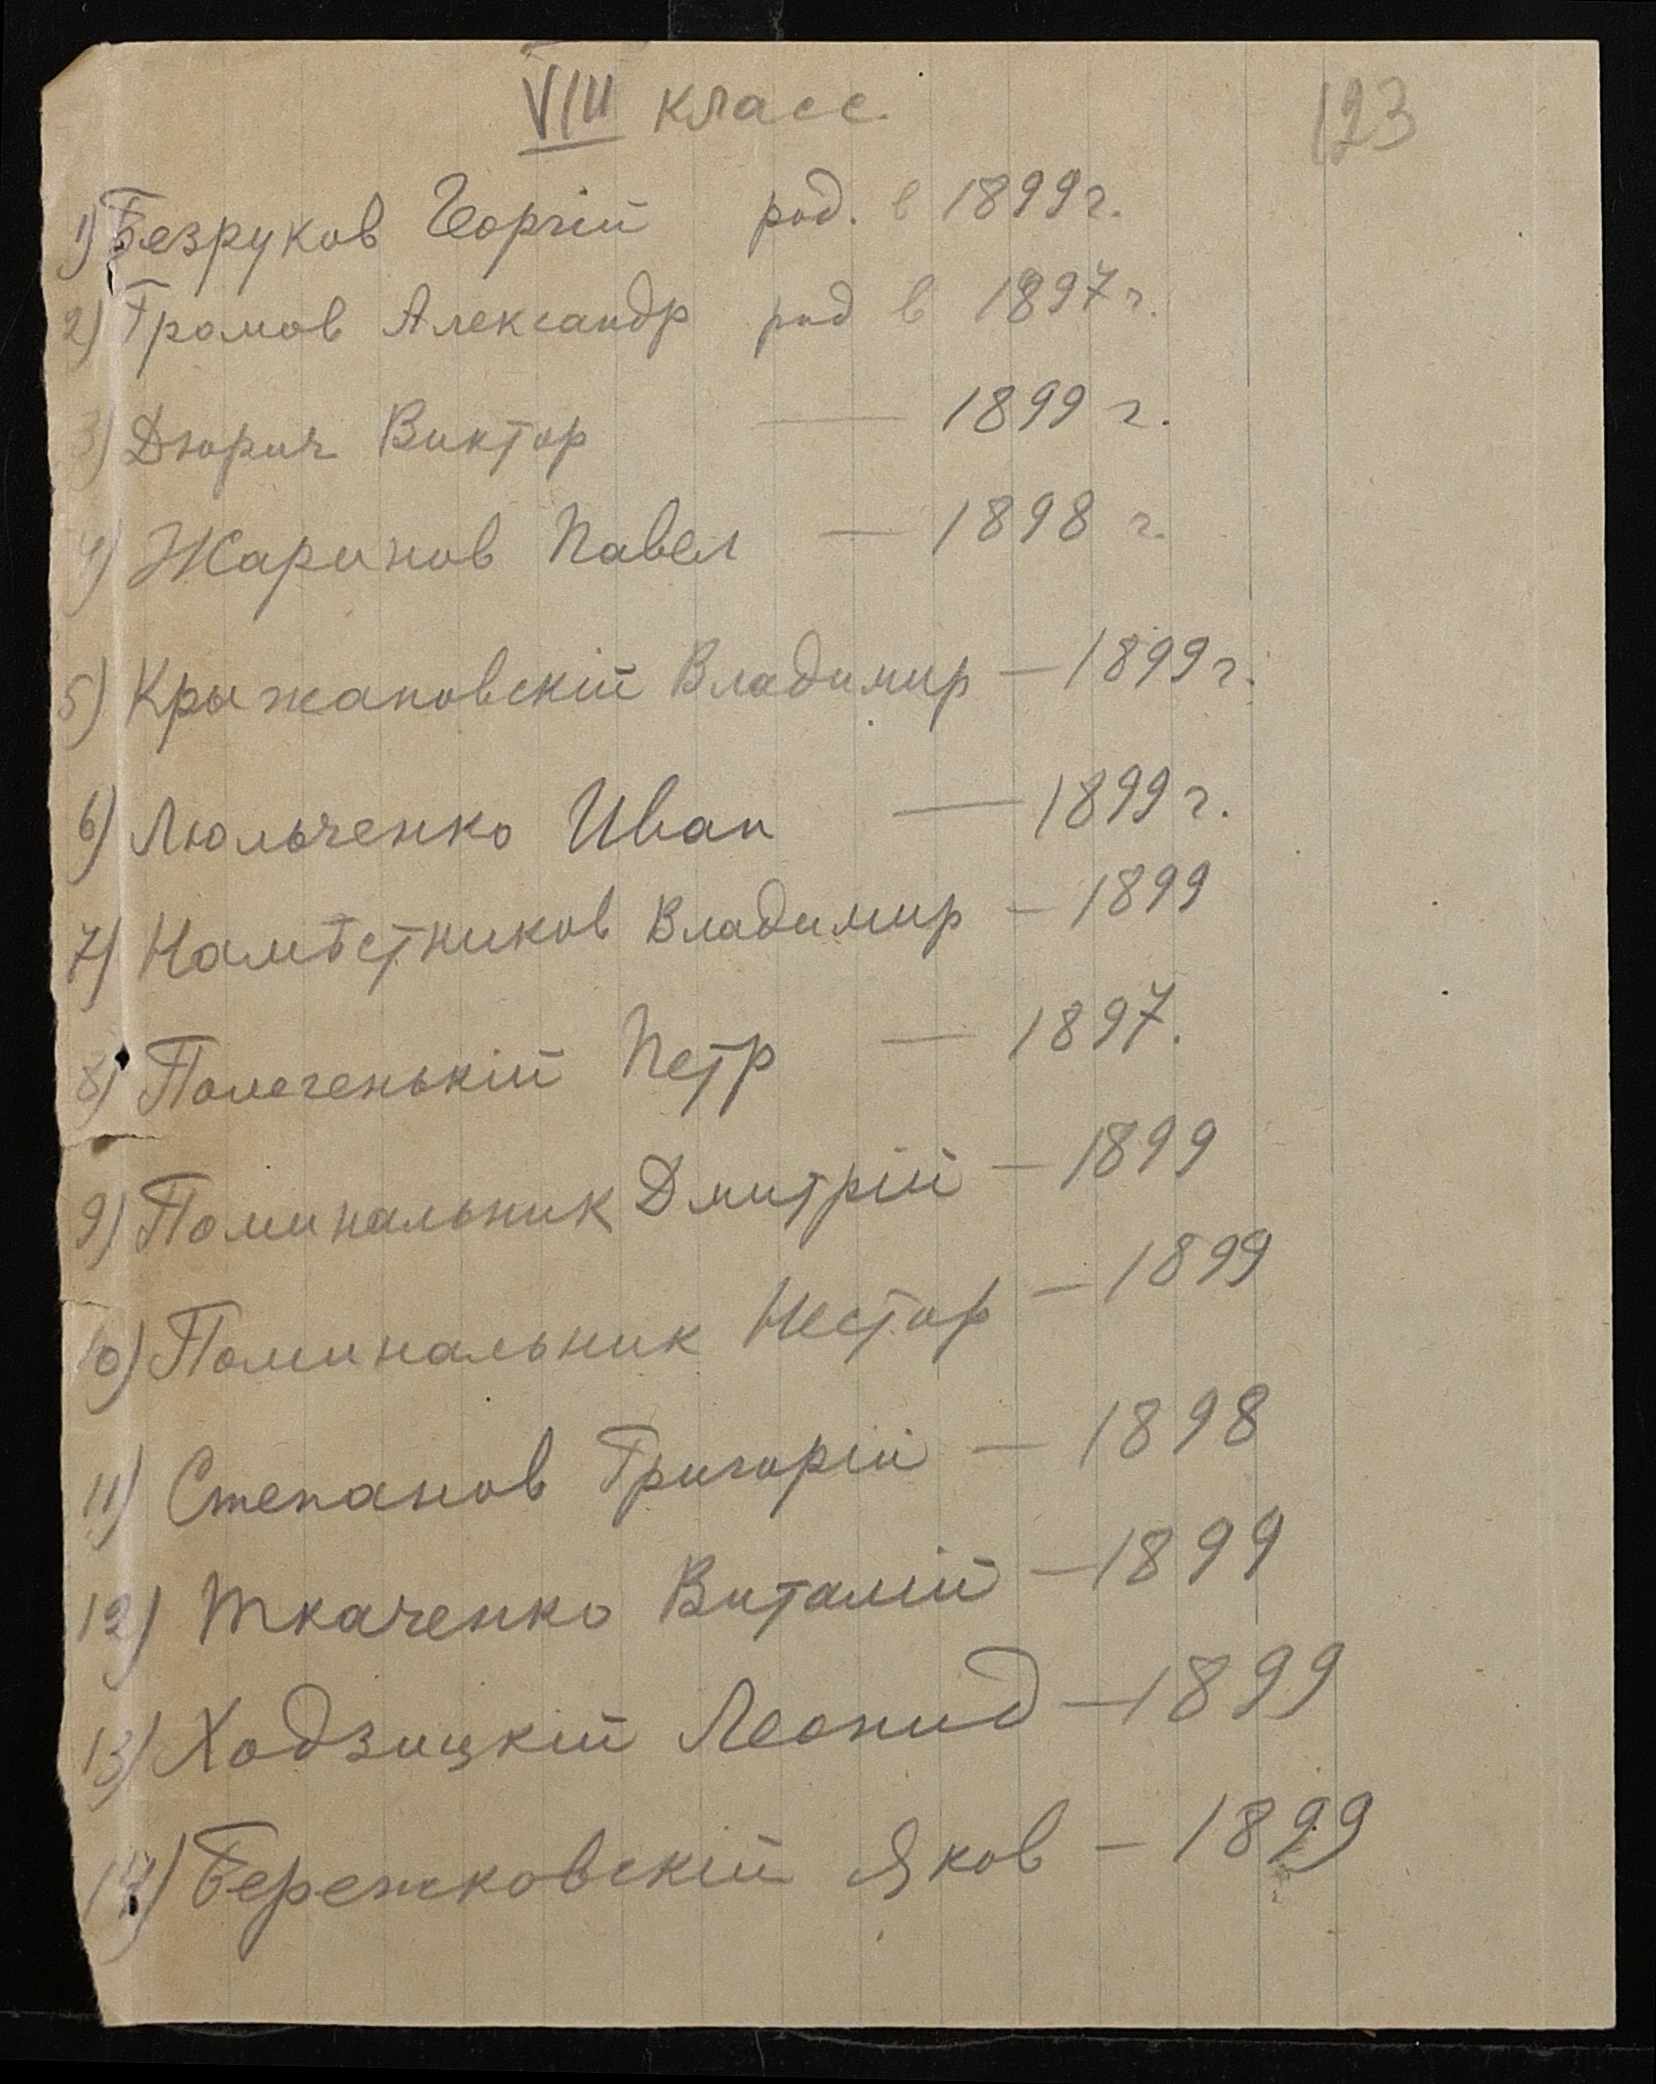 VIII класс
123
1) Безруков Георгій род. в 1899 г.
2) Громов Александр род в 1897 г.
3) Дюрич Виктор — 1899 г.
4) Жаринов Павел — 1898 г.
5) Крыжановскій Владимир — 1899 г.
6) Люльченко Иван — 1899 г.
7) Намѣстников Владимир — 1899
8) Полегенькій Петр — 1897.
9) Поминальник Дмитрій — 1899
10) Поминальник Нестор — 1899
11) Степанов Григорій — 1898
12) Ткаченко Виталій — 1899
13) Ходзицкій Леонид — 1899
14) Бережковскій Яков — 1899